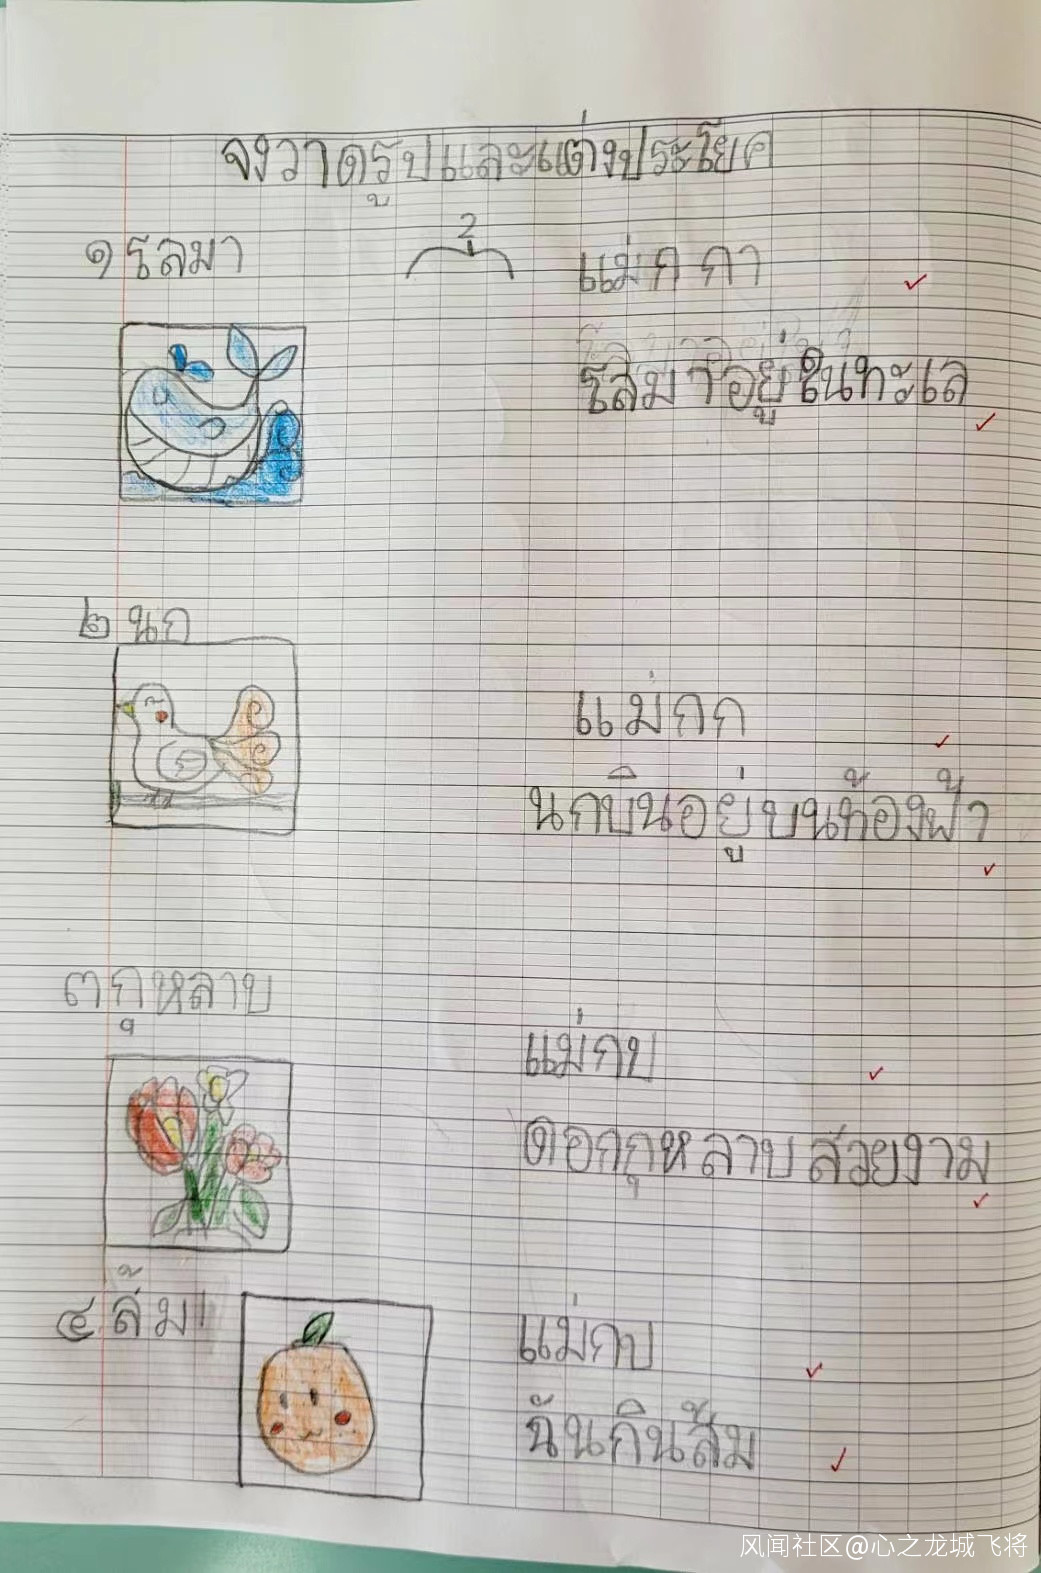 จงวาดรูปและแต่งประโยค
๑ โลมา
2
แม่ก กา
โลมาอยู่ในทะเล
๒ นก
แม่กก
นกบินอยู่บนท้องฟ้า
๓ กุหลาบ
แม่กบ
ดอกกุหลาบสวยงาม
๔ ส้ม
แม่กบ
ฉันกินส้ม
风闻社区@心之龙城飞将